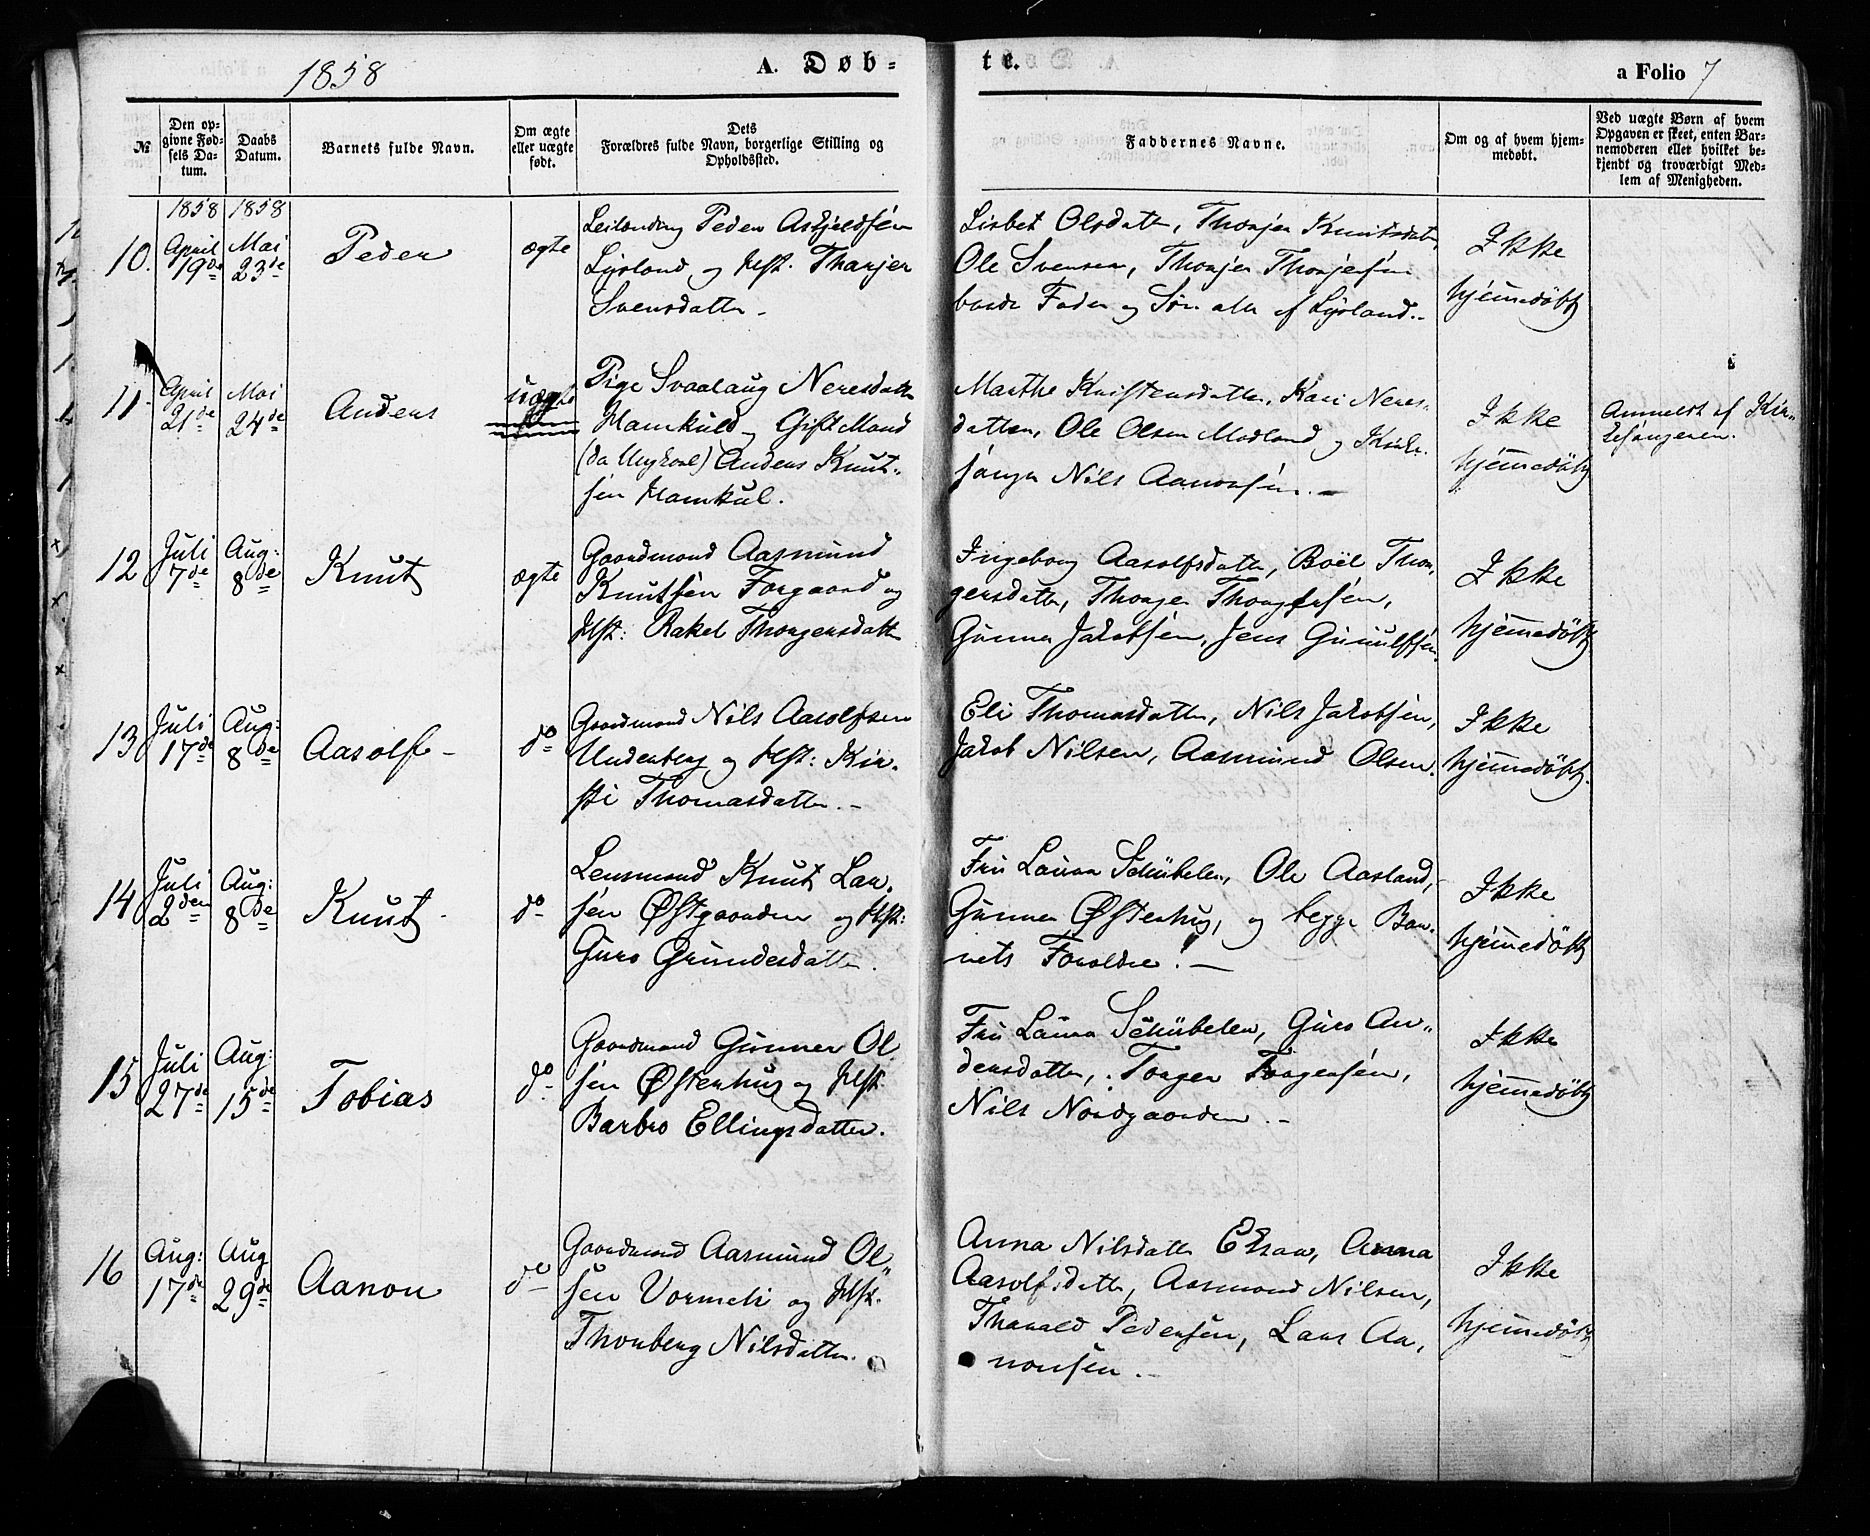 1858
A. Døb-
te.
a Folio 7
№
Den op-
givne Fød-
sels Da-
tum.
Daabs
Datum.
Barnets fulde Navn.
Om ægte
eller uægte
født.
Dets
Forældres fulde Navn, borgerlige Stilling og
Opholdssted.
Faddernes Navne.
Om og af hvem hjem-
medøbt.
Ved uægte Børn af hvem
Opgaven er skeet, enten Bar-
nemoderen eller hvilket be-
kjendt og troværdigt Med-
lem af Menigheden.
1858 1858
10.
April
19de
Mai
23de
Peder
ægte
Leilending Peder Askjeldsen
Lysland og Hst. Thorjer
Svensdatter -
Lisbet Olsdatter, Thorjer Knutsdatter,
Ole Svensen, Thorjer Thorjersen
baade Fader og Søn alle af Lysland.-
Ikke
hjemmedøbt
11.
April
21de
Mai
24de
Anders
uægte
Pige Svaalaug Neresdatter
Hamkuld og Gift Mand
(da Ungkarl) Anders Knut-
sen Hamkul.
Marthe Kristensdatter, Kari Neres-
datter, Ole Olsen Modland og Kirke-
sanger Nils Aanonsen. -
Ikke
hjemmedøbt
Anmeldt af Kir-
kesangeren.
12
Juli
7de
Aug:
8de
Knut
ægte
Gaardmand Aasmund
Knutsen Forgaard og
Hst: Rakel Thorgersdatter
Ingeborg Aasolfsdatter, Boël Thor-
gersdatter, Thorger Thorgersen,
Gunner Jakobsen, Jens Gunulfsen.
Ikke
hjemmedøbt
13
Juli
17de
Aug:
8de
Aasolf -
do
Gaardmand Nils Aasolfsen
Underberg og Hst: Kir-
sti Thomasdatter. -
Eli Thomasdatter, Nils Jakobsen,
Jakob Nilsen, Aasmund Olsen.
Ikke
hjemmedøbt.
14
Juli
2den
Aug:
8de
Knut
do
Lensmand Knut Lar-
sen Østgaarden og Hst:
Guro Grundesdatter.
Fru Laura Schübeler, Ole Aasland,
Gunner Østerhus, og begge Bar-
nets Foraldre. -
Ikke
hjemmedøbt
15
Juli
27de
Aug:
15de
Tobias
do
Gaardmand Gunner Ol-
sen Østerhus og Hst.
Barbro Ellingsdatter.
Fru Laura Schübeler, Guro An-
dersdatter, Torger Torgersen,
Nils Nordgaarden. -
Ikke
hjemmedøbt
16
Aug:
17de
Aug
29de
Aanon
do
Gaardmand Aasmund Ol-
sen Vormeli og Hst.
Thorberg Nilsdatter.
Anna Nilsdatter Ekraw, Anna
Aasolfsdatter, Aasmond Nilsen,
Tharald Pedersen, Lars Aa-
nonsen. -
Ikke
hjemmedøbt